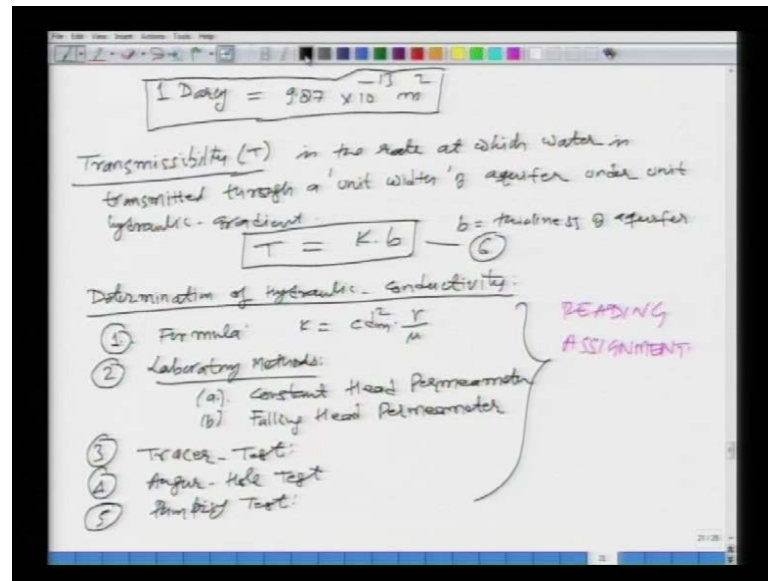 File Edit View Insert Actions Tools Help
1 Darcy = 9.87 x 10^-13 m^2
Transmissibilty (T) is the rate at which water is
transmitted through a 'unit width' of aquifer under unit
hydraulic-gradient.
b = thickness of aquifer
T = K.b — 6
Determination of Hydraulic-conductivity:
1 Formula: K = cdm^2. γ/μ
2 Laboratory Methods:
(a). Constant Head Permeameter
(b) Falling Head Permeameter
3 Tracer-Test:
4 Augur-Hole Test
5 Pumping Test:
READING
ASSIGNMENT.
21/21